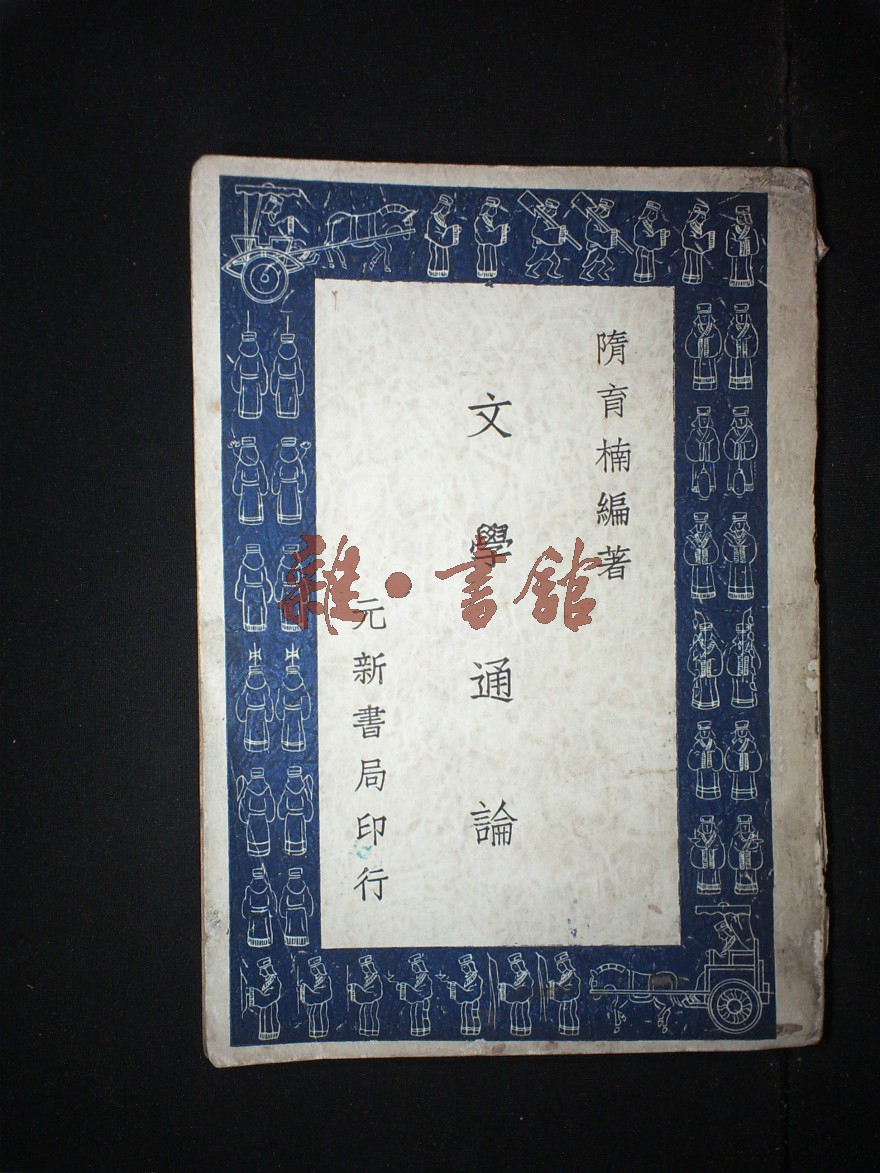 隋育楠編著
文學通論
元新書局印行
雜·書館